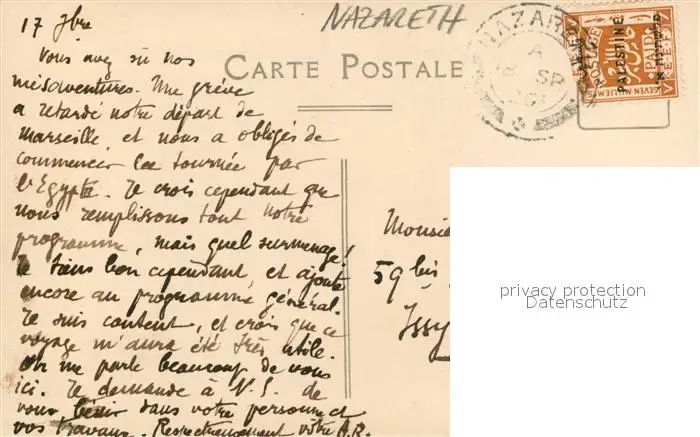 17 7bre
NAZARETH
Vous avez su nos
mésaventures. Une grève
a retardé notre départ de
Marseille, et nous a obligés de
commencer la tournée par
l'Egypte. Je crois cependant que
nous remplissons tout notre
programme, mais quel surmenage!
Je tiens bon cependant et ajoute
encore au programme général.
Je suis content, et crois que ce
voyage m'aura été très utile.
On me parle beaucoup de vous
ici. Je demande à N.S. de
vous bénir dans votre personne et
vos travaux. Respectueusement vôtre A.R.
CARTE POSTALE
NAZAR
A
SP
PALESTINE
POSTAGE
PAID
E.E.F.
SEVEN MILLIEMES
Monsie
59 bis
Issy
privacy protection
Datenschutz